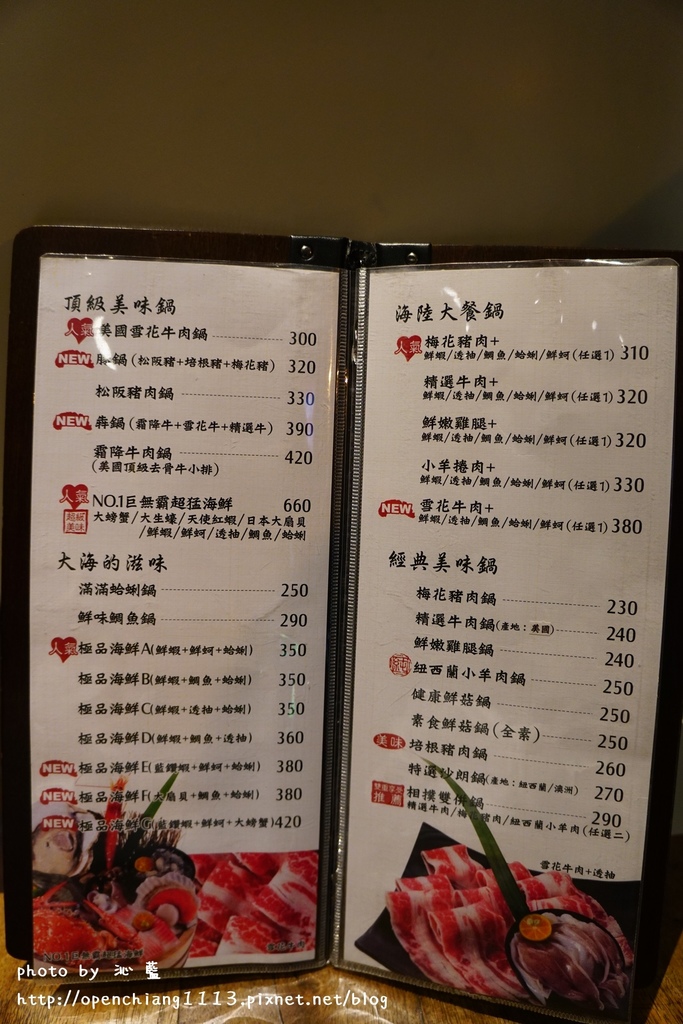 頂級美味鍋
人氣 美國雪花牛肉鍋 300
NEW 豚鍋(松阪豬+培根豬+梅花豬) 320
松阪豬肉鍋 330
NEW 犇鍋(霜降牛+雪花牛+精選牛) 390
霜降牛肉鍋 420
(美國頂級去骨牛小排)
人氣 NO.1巨無霸超猛海鮮 660
超級美味 大螃蟹/大生蠔/天使紅蝦/日本大扇貝
/鮮蝦/鮮蚵/透抽/鯛魚/蛤蜊
大海的滋味
滿滿蛤蜊鍋 250
鮮味鯛魚鍋 290
人氣 極品海鮮A(鮮蝦+鮮蚵+蛤蜊) 350
極品海鮮B(鮮蝦+鯛魚+蛤蜊) 350
極品海鮮C(鮮蝦+透抽+蛤蜊) 350
極品海鮮D(鮮蝦+鯛魚+透抽) 360
NEW 極品海鮮E(藍鑽蝦+鮮蚵+蛤蜊) 380
NEW 極品海鮮F(大扇貝+鯛魚+蛤蜊) 380
NEW 極品海鮮G(藍鑽蝦+鮮蚵+大螃蟹) 420
NO.1巨無霸超猛海鮮
雪花牛肉
海陸大餐鍋
人氣 梅花豬肉+
鮮蝦/透抽/鯛魚/蛤蜊/鮮蚵(任選1) 310
精選牛肉+
鮮蝦/透抽/鯛魚/蛤蜊/鮮蚵(任選1) 320
鮮嫩雞腿+
鮮蝦/透抽/鯛魚/蛤蜊/鮮蚵(任選1) 320
小羊捲肉+
鮮蝦/透抽/鯛魚/蛤蜊/鮮蚵(任選1) 330
NEW 雪花牛肉+
鮮蝦/透抽/鯛魚/蛤蜊/鮮蚵(任選1) 380
經典美味鍋
梅花豬肉鍋 230
精選牛肉鍋(產地:美國) 240
鮮嫩雞腿鍋 240
紐西蘭小羊肉鍋 250
健康鮮菇鍋 250
素食鮮菇鍋(全素) 250
美味 培根豬肉鍋 260
特選沙朗鍋(產地:紐西蘭/澳洲) 270
雙重享受 推薦 相撲雙併鍋 290
精選牛肉/梅花豬肉/紐西蘭小羊肉(任選二)
雪花牛肉+透抽
photo by 沁藍
http://openchiang1113.pixnet.net/blog